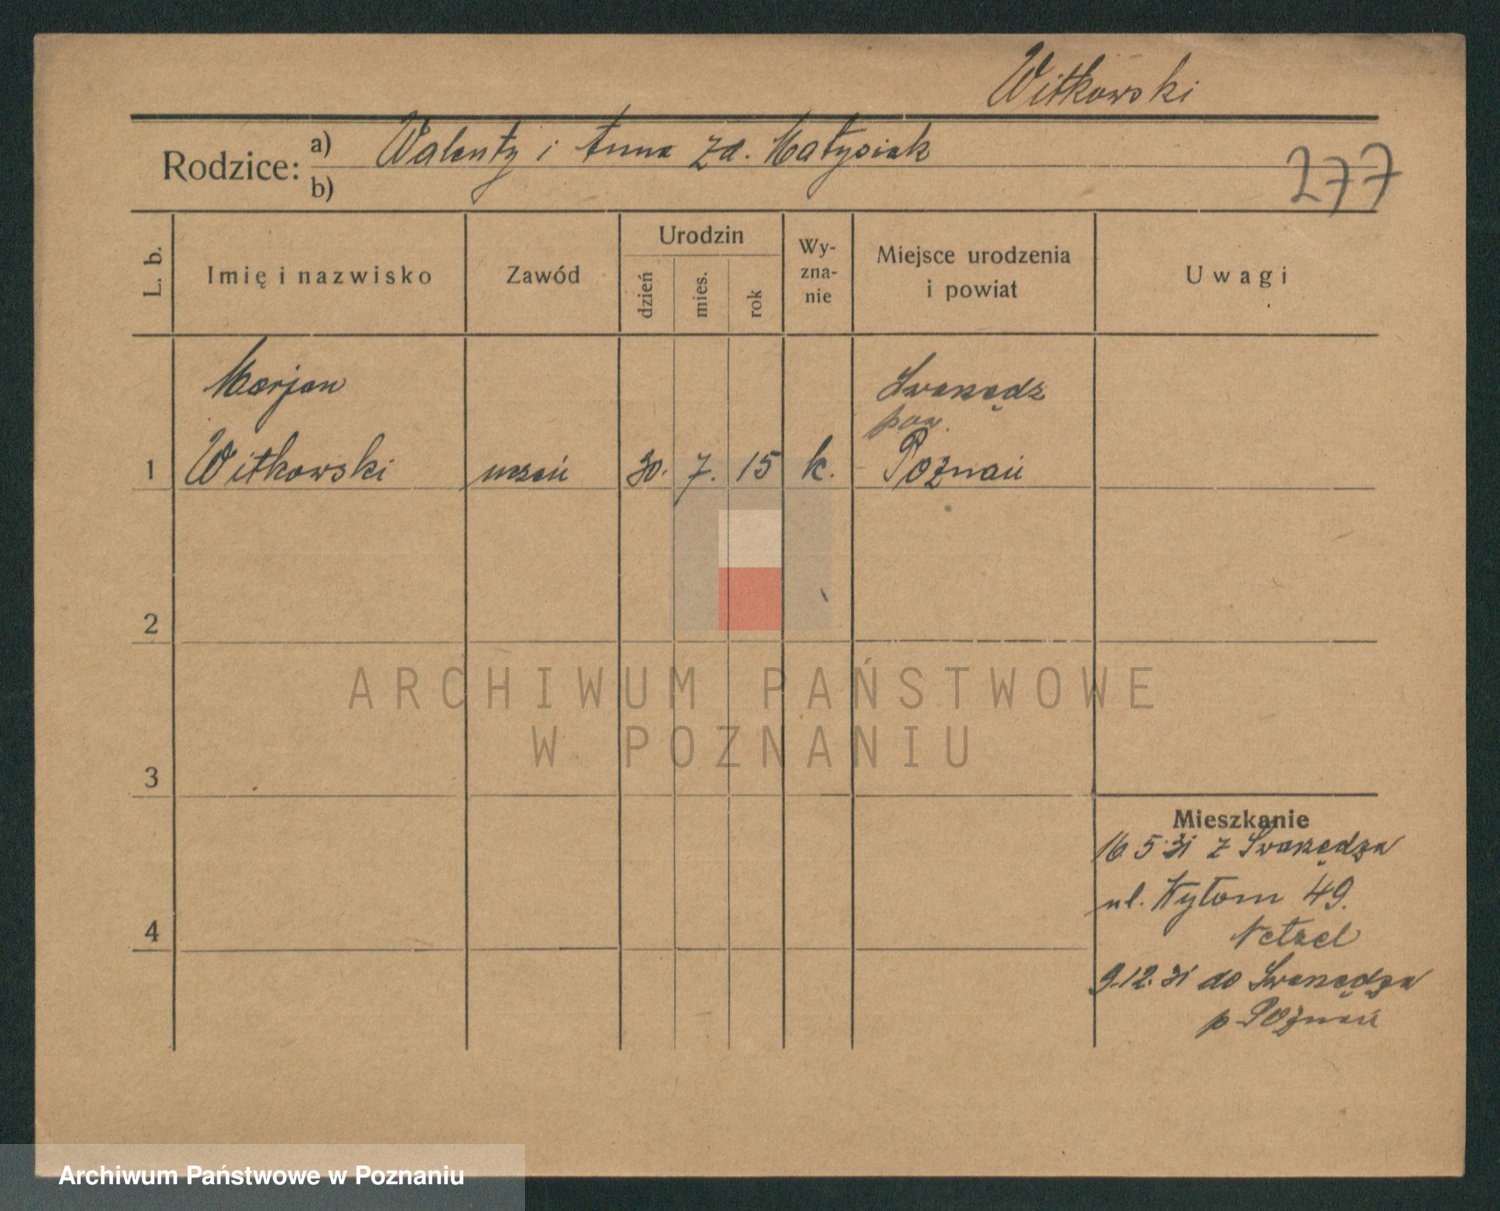 Witkowski
Rodzice: a) Walenty i Anna zd. Matysiak
b)
277
L. b. Imię i nazwisko Zawód Urodzin dzień mies. rok Wy-zna-nie Miejsce urodzenia i powiat Uwagi
Marjan Swarzędz
pow.
1 Witkowski uczeń 30. 7. 15 k. Poznań
2
ARCHIWUM PAŃSTWOWE
W POZNANIU
3
Mieszkanie
16 5 31 z Swarzędza
ul. 49.
4
9.12.31 do Swarzędza
p Poznań
Archiwum Państwowe w Poznaniu